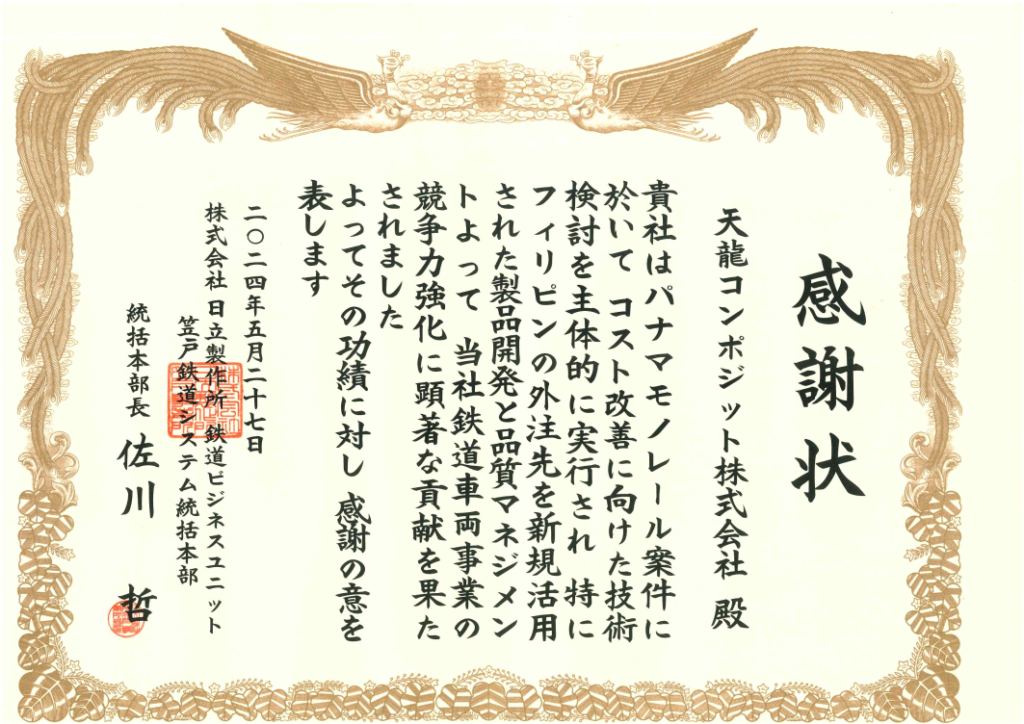 感謝状
天龍コンポジット株式会社 殿
貴社はパナマモノレール案件に
於いて コスト改善に向けた技術
検討を主体的に実行され 特に
フィリピンの外注先を新規活用
された製品開発と品質マネジメン
トよって 当社鉄道車両事業の
競争力強化に顕著な貢献を果た
されました
よってその功績に対し 感謝の意を
表します
二〇二四年五月二十七日
株式会社 日立製作所 鉄道ビジネスユニット
笠戸鉄道システム統括本部
統括本部長 佐川 哲